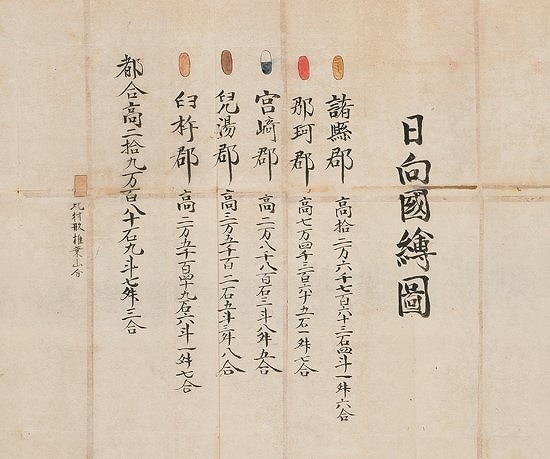 日向國繪圖
諸縣郡 高拾二万六千七百六十三石四斗一舛六合
那珂郡 高七万四千三百六十五石一舛七合
宮﨑郡 高二万八千八百石三斗八舛五合
兒湯郡 高三万五千百二石五斗三舛八合
臼杵郡 高二万五千百四十九石六斗一舛七合
都合高二拾九万百八十石九斗七舛三合
此村形椎葉山分